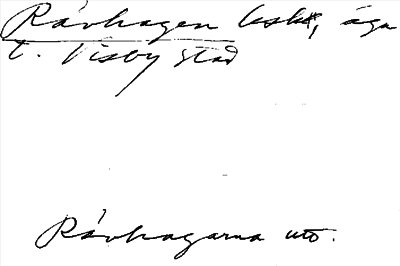 Rävhagen besk, äga
t. Visby stad
Rävhagarna utt.